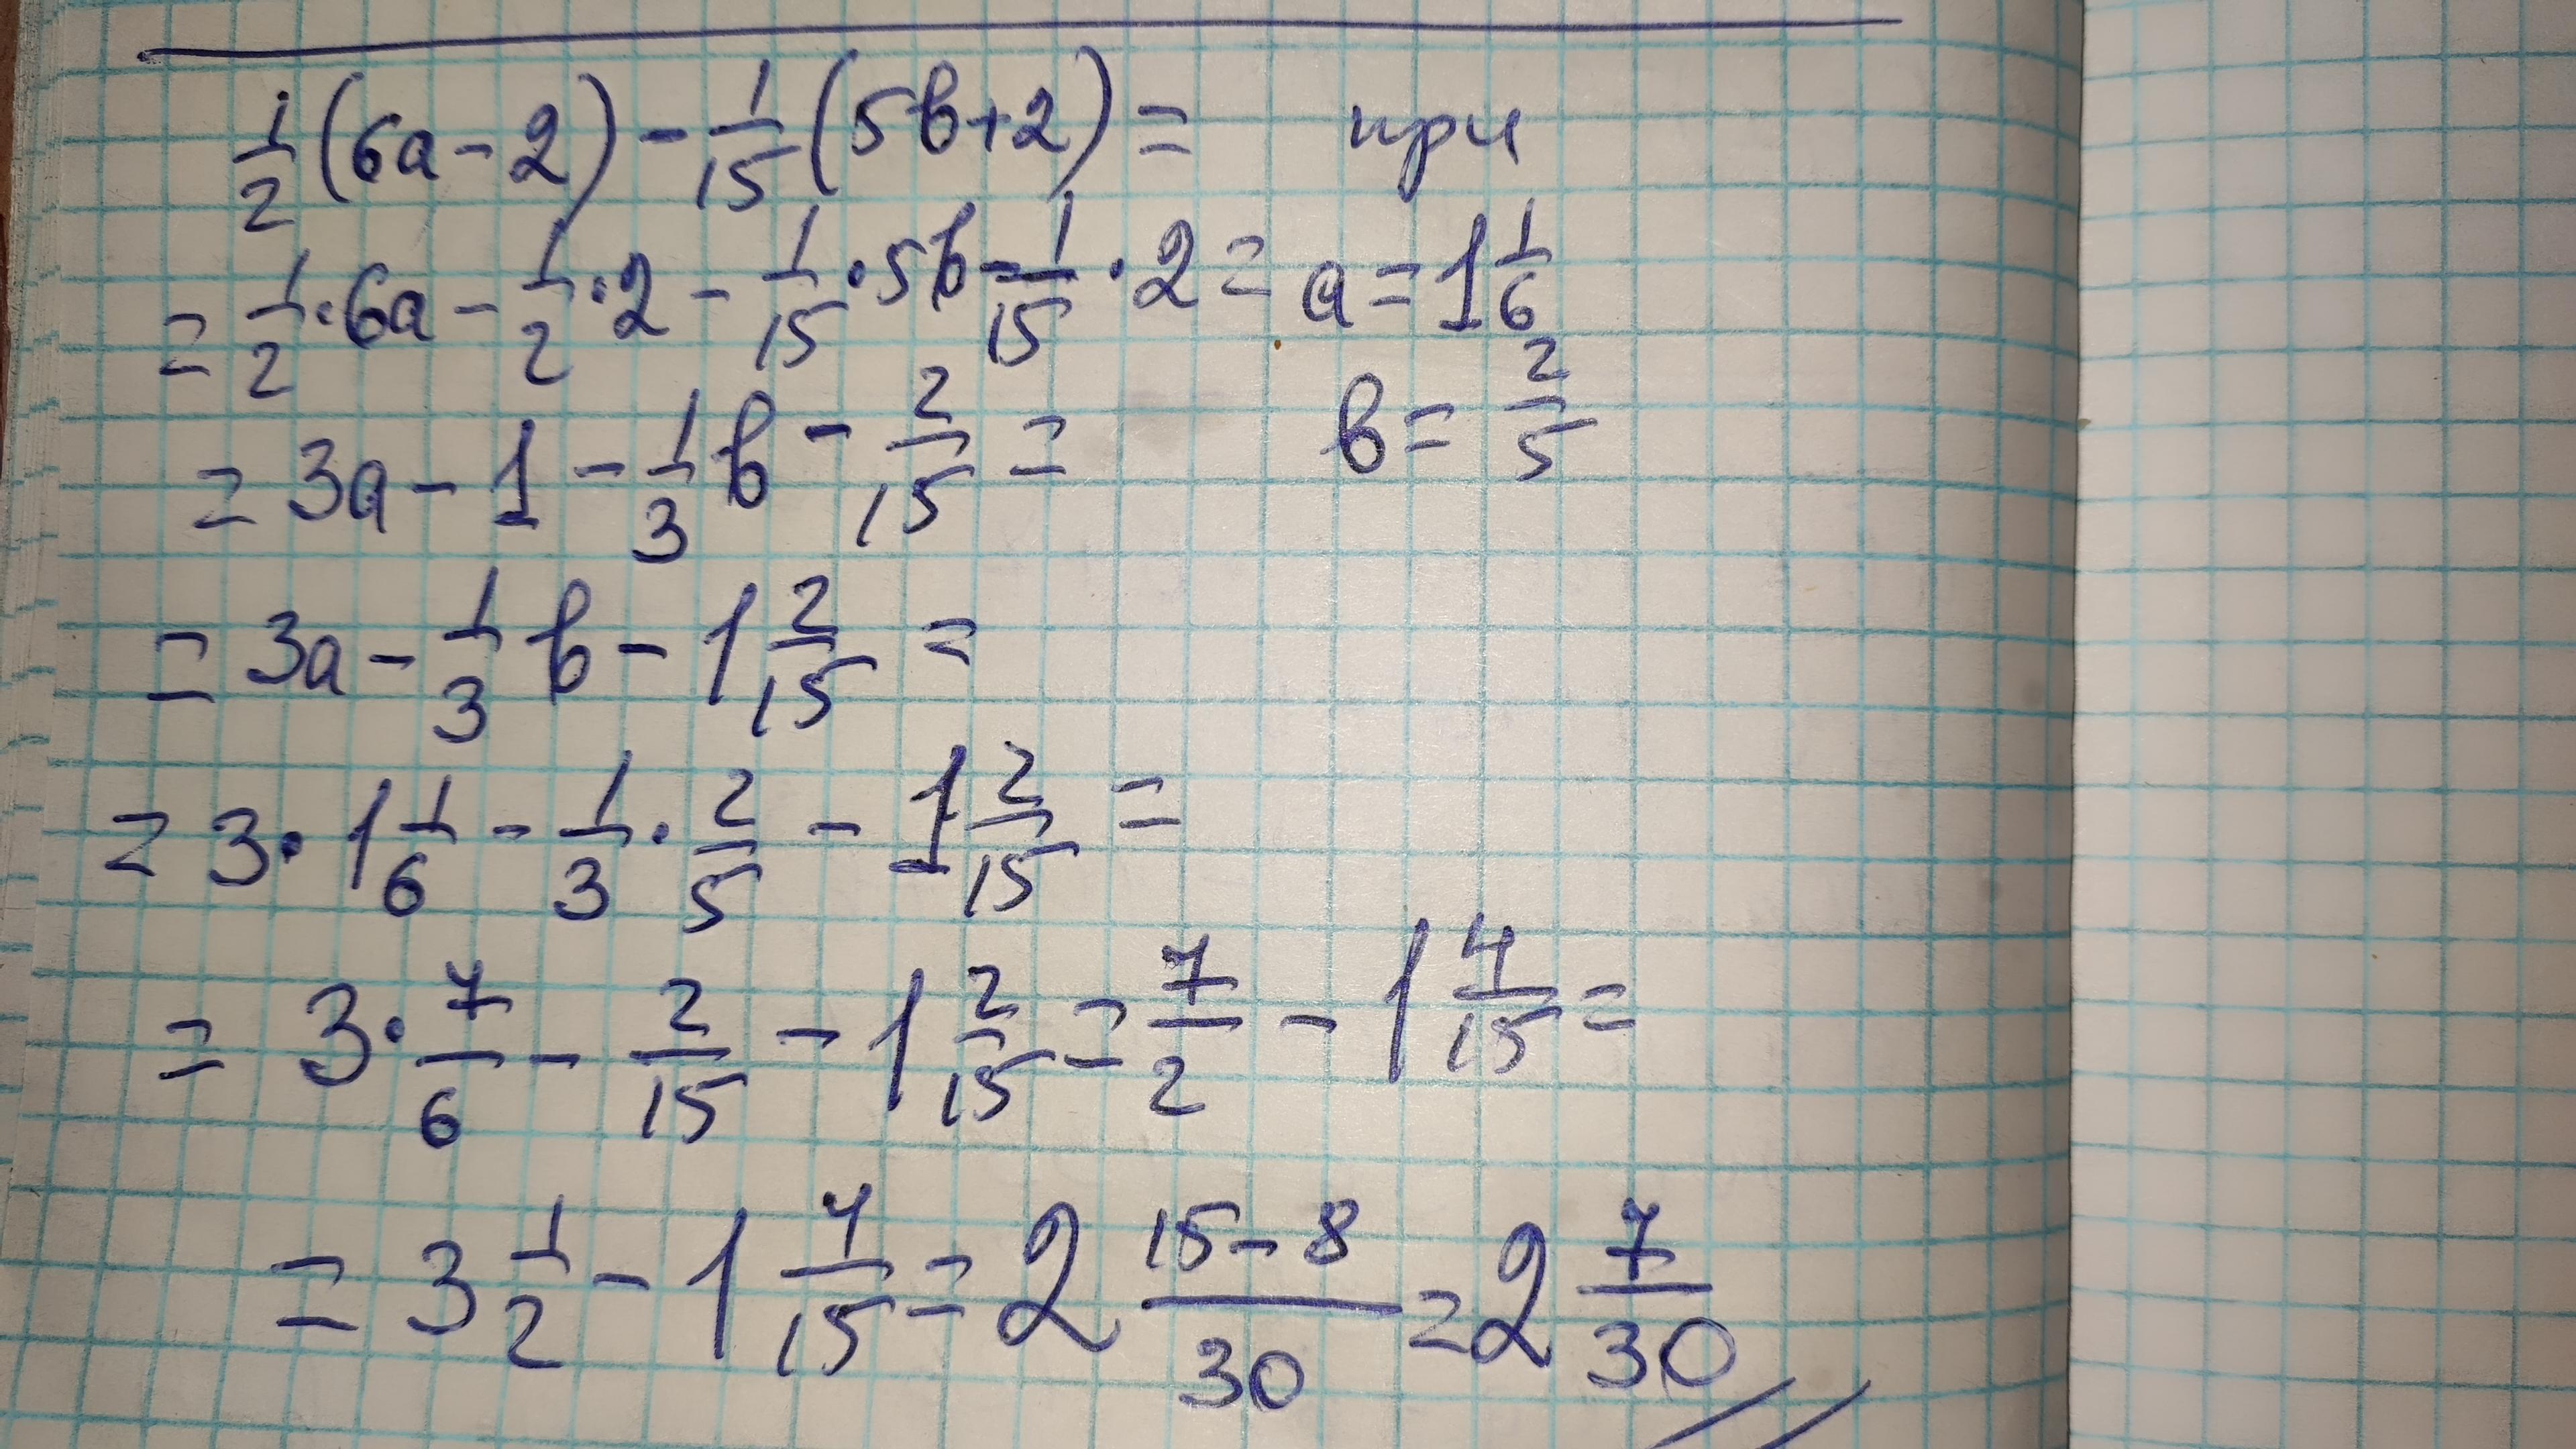 1/2(6a-2)-1/15(5b+2)= при
=1/2·6a-1/2·2-1/15·5b-1/15·2= a=1 1/6
b=2/5
=3a-1-1/3b-2/15=
=3a-1/3b-1 2/15=
=3·1 1/6-1/3·2/5-1 2/15=
=3·7/6-2/15-1 2/15=7/2-1 4/15=
=3 1/2-1 4/15=2 15-8/30=2 7/30